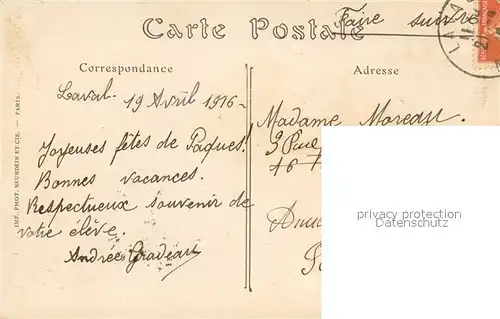 Carte Postale
Faire suivre
Correspondance
Adresse
Laval. 19 Avril 1916
Joyeuses fêtes de Pâques!
Bonnes vacances.
Respectueux souvenir de
votre élève.
Andrée Gradeau
Madame Moreau.
3
privacy protection
Datenschutz
IMP. PHOT. NEURDEIN ET CIE. - PARIS.